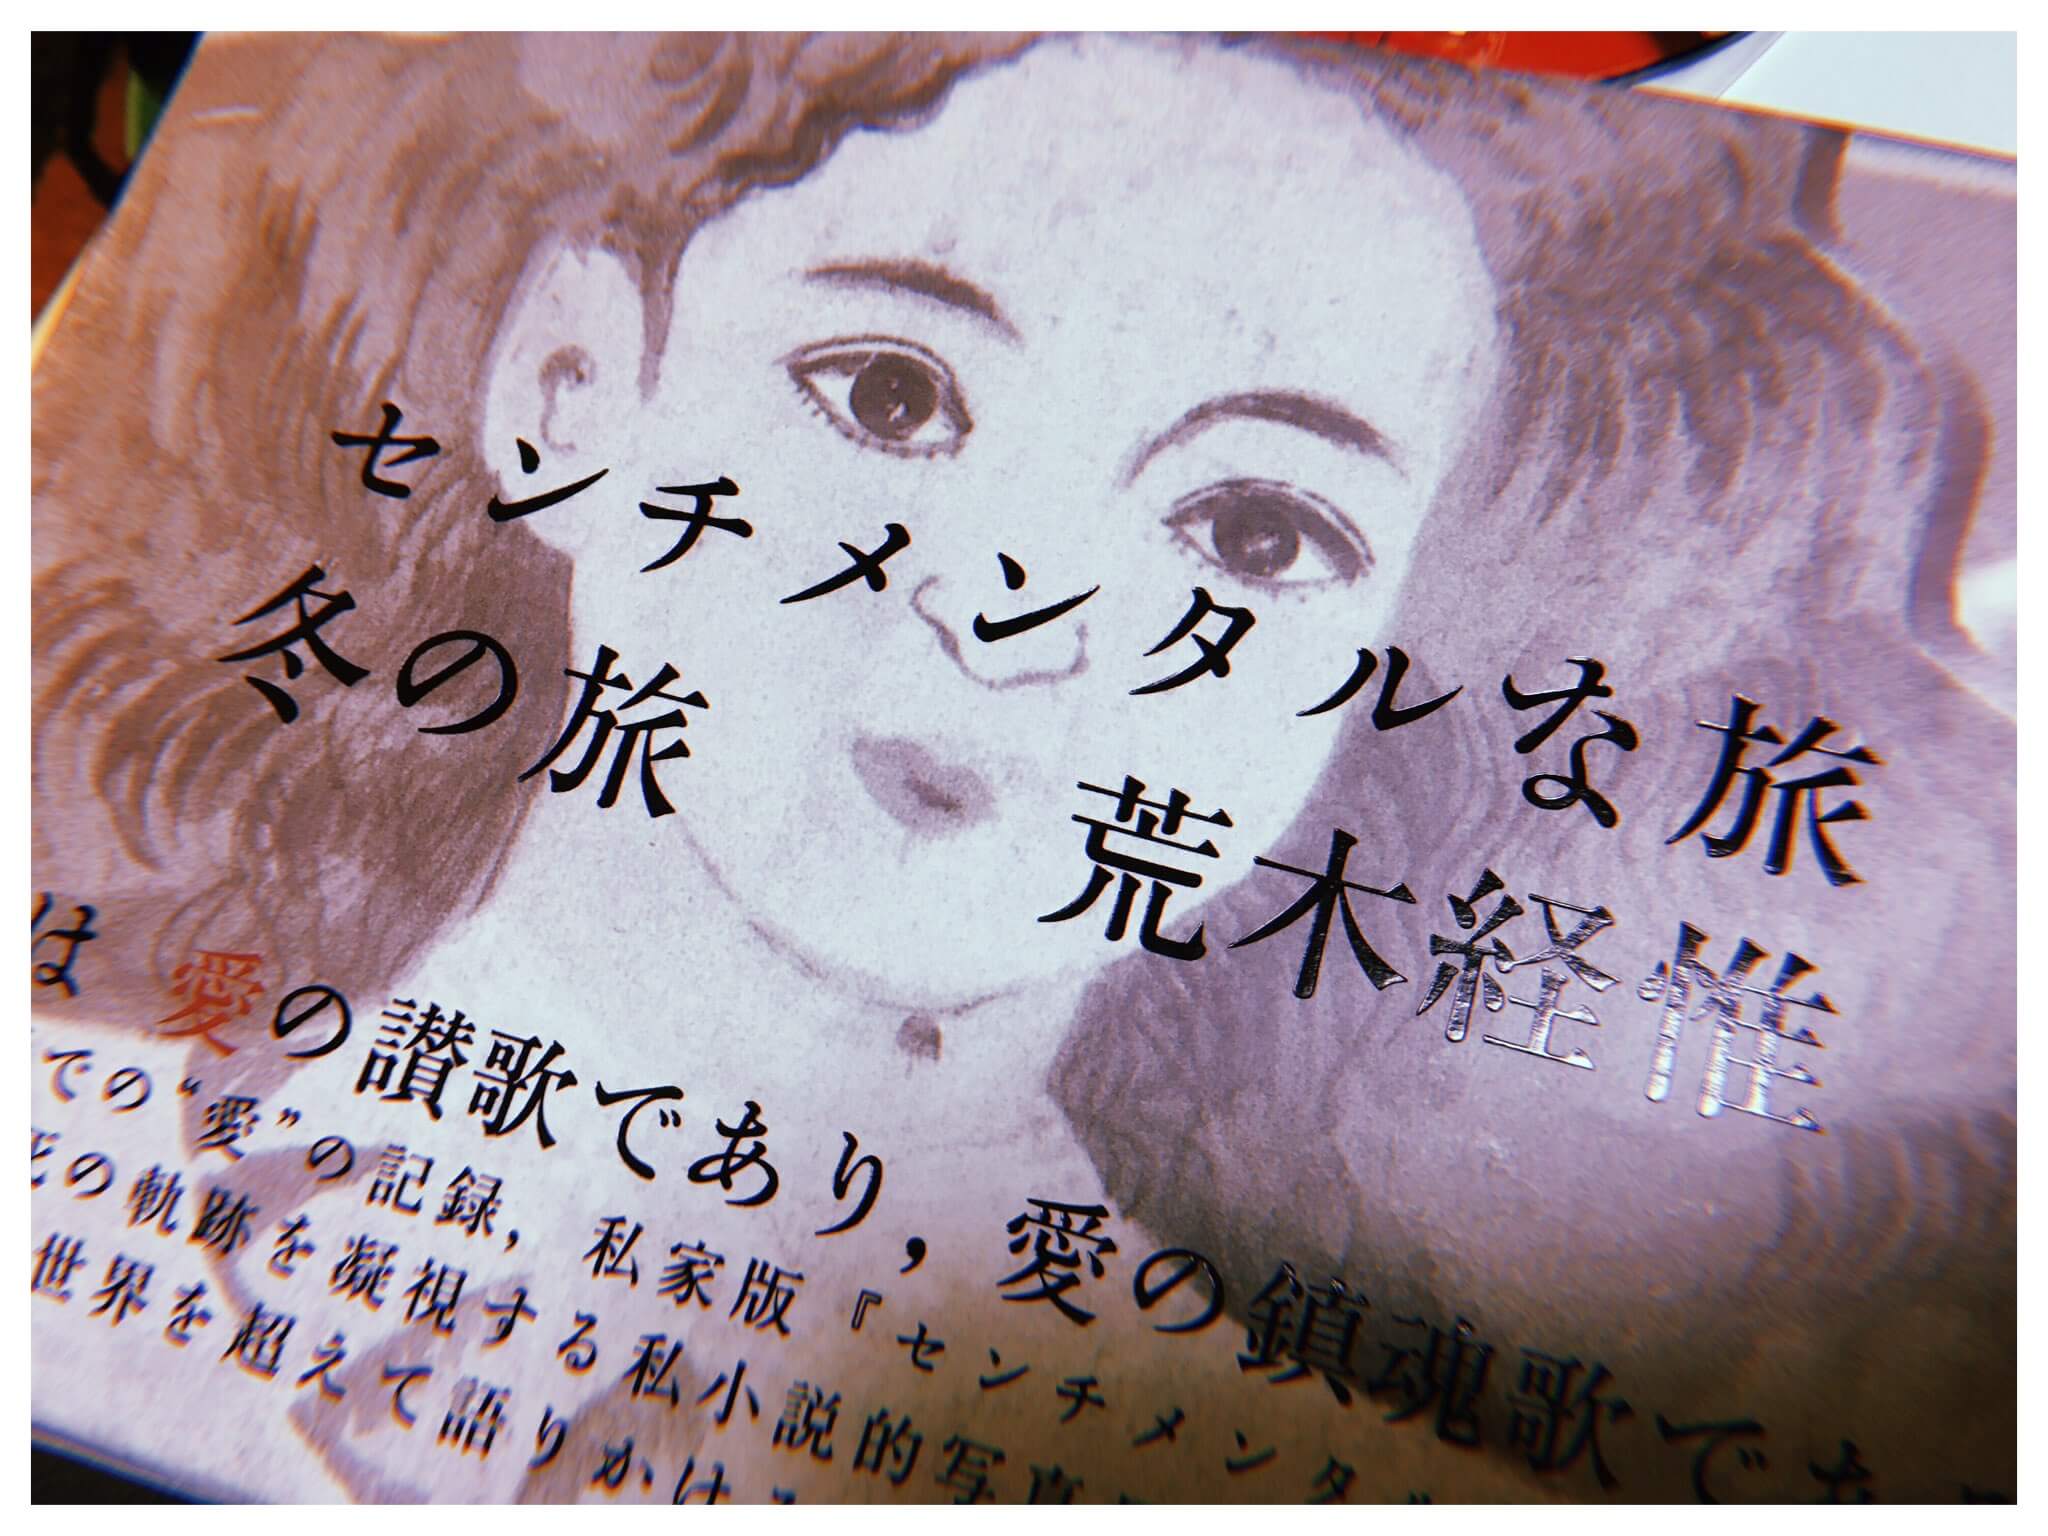 センチメンタルな旅
冬の旅 荒木経惟
は 愛の讃歌であり，愛の鎮魂歌でも
での“愛”の記録，私家版『センチメンタ
死の軌跡を凝視する私小説的写真
世界を超えて語りかけ